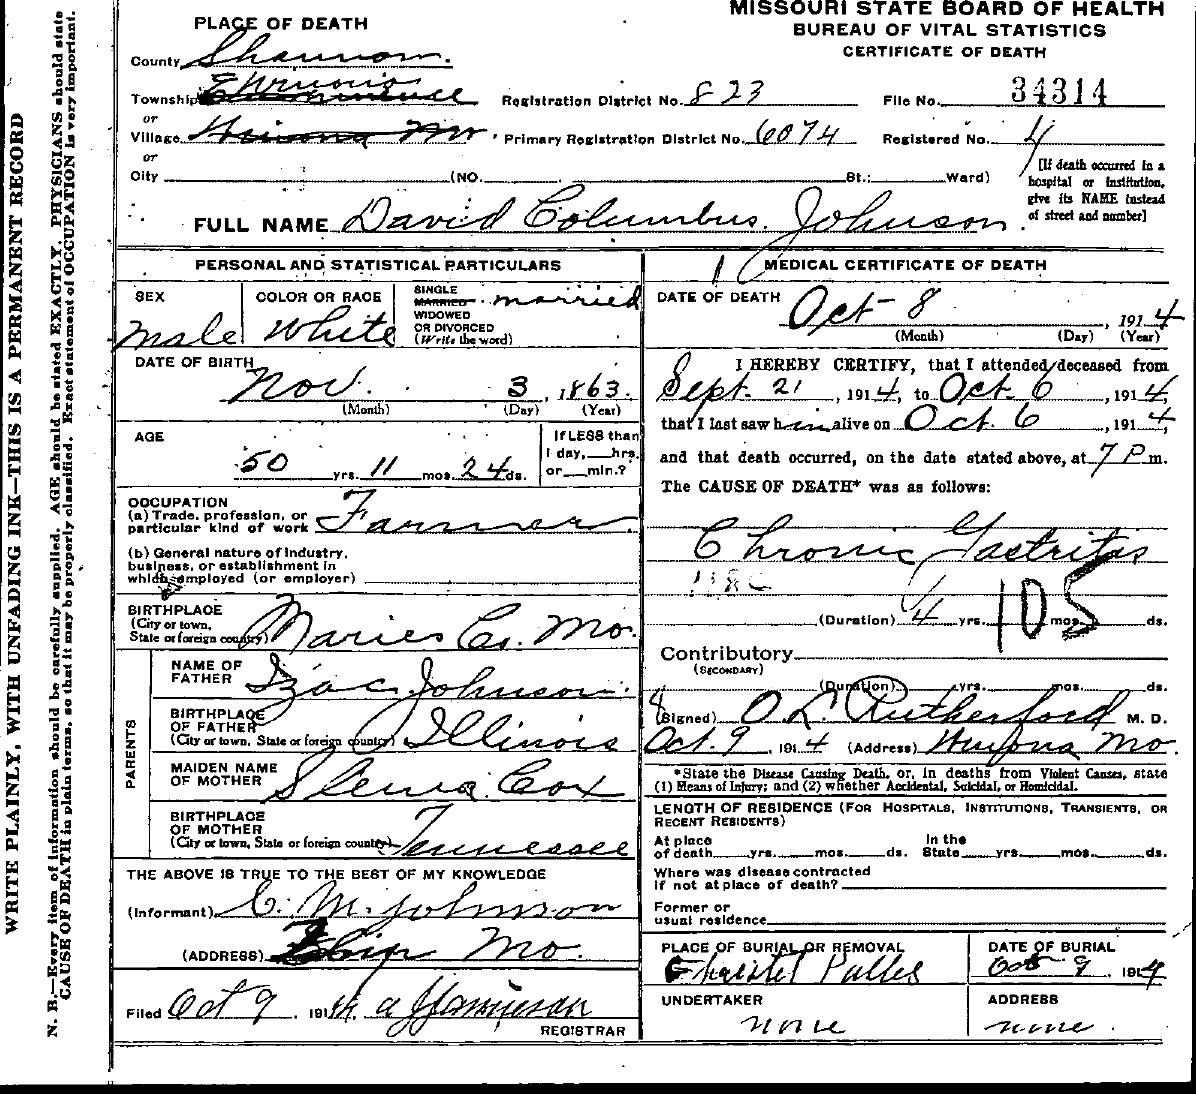 MISSOURI STATE BOARD OF HEALTH
BUREAU OF VITAL STATISTICS
CERTIFICATE OF DEATH
PLACE OF DEATH
County Shannon.
Township
or
Village Mo.
or
City (NO. St.; Ward)
Registration District No. 823 File No. 34314
Primary Registration District No. 6074 Registered No. 4
[If death occurred in a
hospital or institution,
give its NAME instead
of street and number]
FULL NAME David Columbus Johnson
PERSONAL AND STATISTICAL PARTICULARS
SEX
male
COLOR OR RACE
White
SINGLE
MARRIED
WIDOWED
OR DIVORCED
(Write the word)
married
DATE OF BIRTH
Nov. 3, 1863.
(Month) (Day) (Year)
AGE
50 yrs. 11 mos. 24 ds.
If LESS than
1 day, hrs.
or min.?
OCCUPATION
(a) Trade, profession, or
particular kind of work Farmer
(b) General nature of industry,
business, or establishment in
which employed (or employer)
BIRTHPLACE
(City or town,
State or foreign country) Maries Co. Mo.
PARENTS
NAME OF
FATHER Izac Johnson
BIRTHPLACE
OF FATHER
(City or town, State or foreign country) Illinois
MAIDEN NAME
OF MOTHER Cox
BIRTHPLACE
OF MOTHER
(City or town, State or foreign country) Tennessee
THE ABOVE IS TRUE TO THE BEST OF MY KNOWLEDGE
(Informant) C. M. Johnson
(ADDRESS) Mo.
Filed Oct 9, 1914
REGISTRAR
MEDICAL CERTIFICATE OF DEATH
DATE OF DEATH
Oct 8, 1914
(Month) (Day) (Year)
I HEREBY CERTIFY, that I attended deceased from
Sept. 21, 1914, to Oct. 6, 1914,
that I last saw him alive on Oct. 6, 1914,
and that death occurred, on the date stated above, at 7 P m.
The CAUSE OF DEATH* was as follows:
Chronic Gastritis
105
(Duration) 4 yrs. mos. ds.
Contributory
(SECONDARY)
(Duration) yrs. mos. ds.
(Signed) O. L. Rutherford M. D.
Oct. 9, 1914 (Address) Winona Mo.
*State the Disease Causing Death, or, in deaths from Violent Causes, state
(1) Means of Injury; and (2) whether Accidental, Suicidal, or Homicidal.
LENGTH OF RESIDENCE (FOR HOSPITALS, INSTITUTIONS, TRANSIENTS, OR
RECENT RESIDENTS)
At place
of death yrs. mos. ds.
In the
State yrs. mos. ds.
Where was disease contracted
if not at place of death?
Former or
usual residence
PLACE OF BURIAL OR REMOVAL
DATE OF BURIAL
Oct 9, 1914
UNDERTAKER
none
ADDRESS
none
WRITE PLAINLY, WITH UNFADING INK—THIS IS A PERMANENT RECORD
N. B.—Every item of information should be carefully supplied. AGE should be stated EXACTLY. PHYSICIANS should state
CAUSE OF DEATH in plain terms, so that it may be properly classified. Exact statement of OCCUPATION is very important.